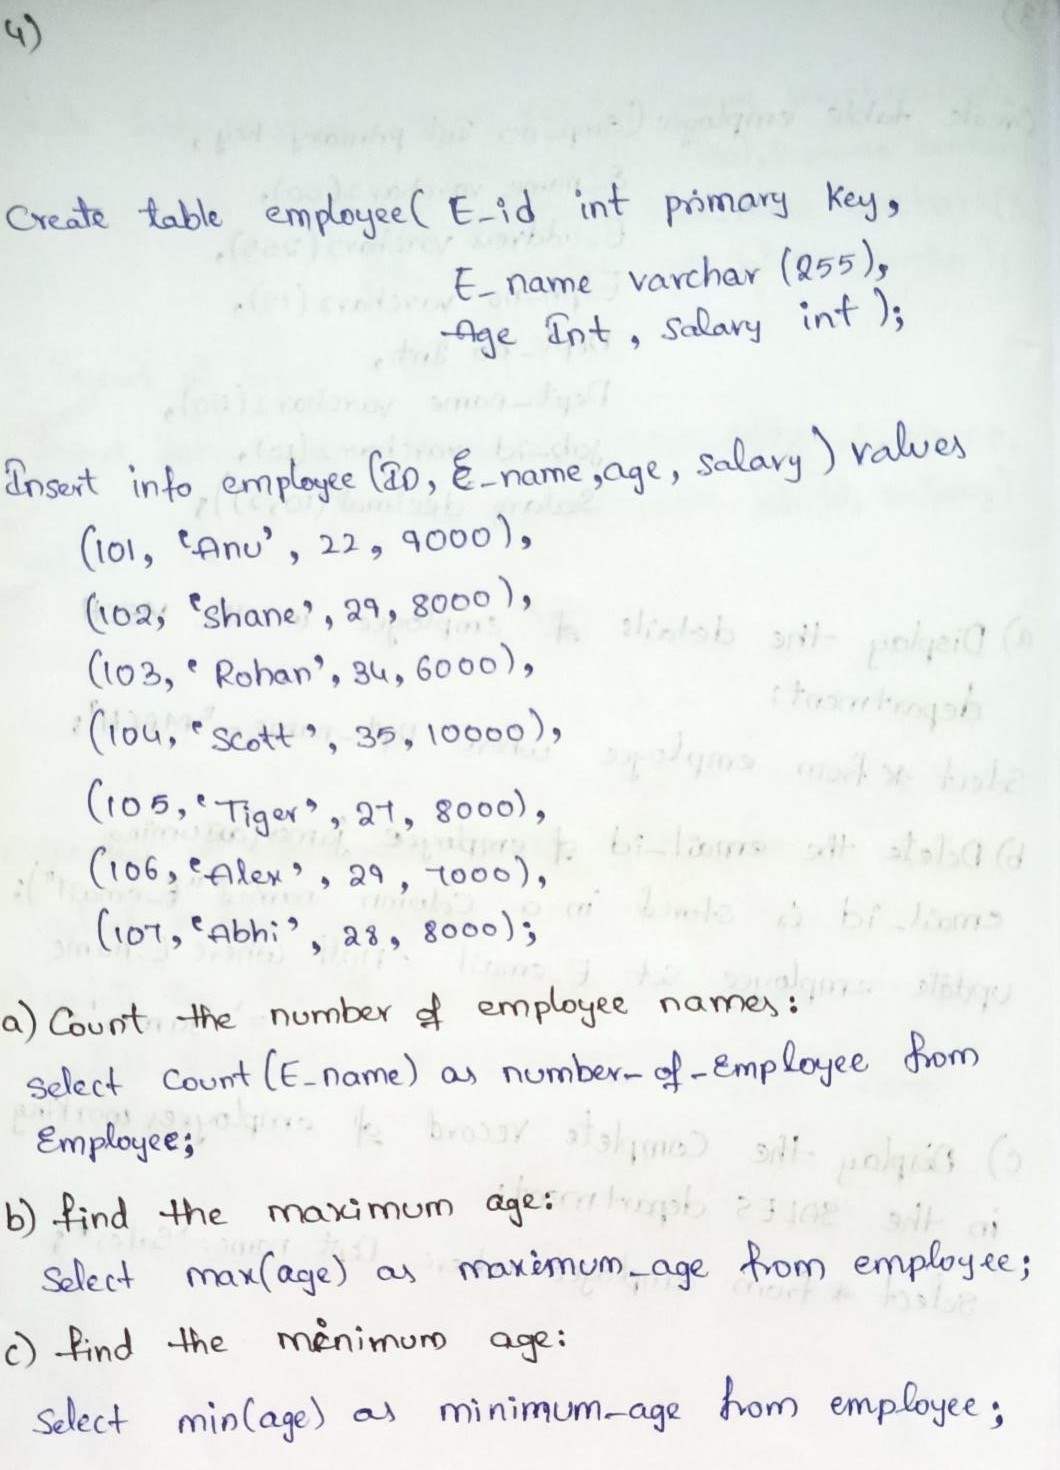 4)
Create table employee( E_id int primary key,
E_name varchar (255),
Age Int, salary int );
Insert into employee (ID, E_name, age, salary) values
(101, 'Anu', 22, 9000),
(102, 'Shane', 29, 8000),
(103, 'Rohan', 34, 6000),
(104, 'Scott', 35, 10000),
(105, 'Tiger', 27, 8000),
(106, 'Alex', 29, 7000),
(107, 'Abhi', 28, 8000);
a) Count the number of employee names:
Select Count (E_name) as number_of_Employee from
Employee;
b) find the maximum age:
Select max(age) as maximum_age from employee;
c) find the minimum age:
Select min(age) as minimum_age from employee;